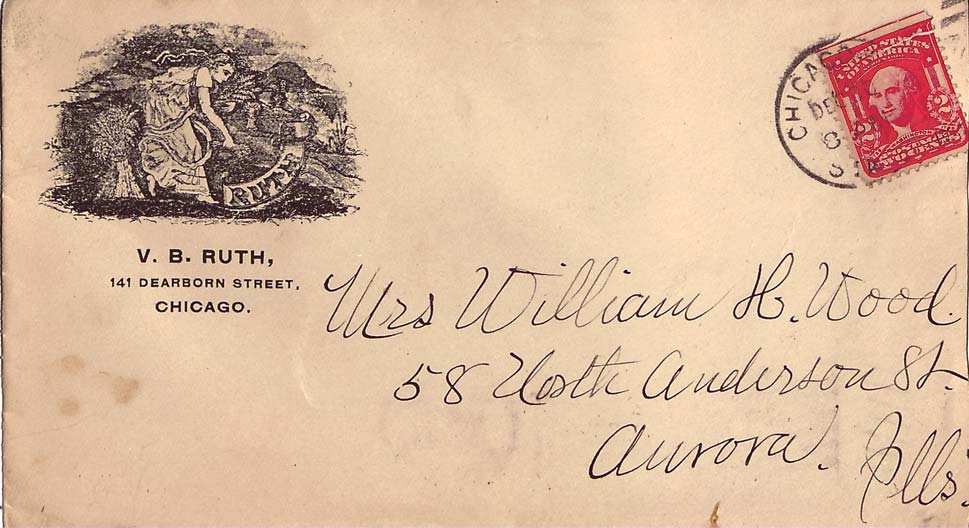 RUTH
V. B. RUTH,
141 DEARBORN STREET,
CHICAGO.
CHICAGO
DE
8
UNITED STATES
OF AMERICA
2 2
WASHINGTON
POSTAGE
TWO CENTS
Mrs William H. Wood.
58 North Anderson St.
Aurora. Ills.